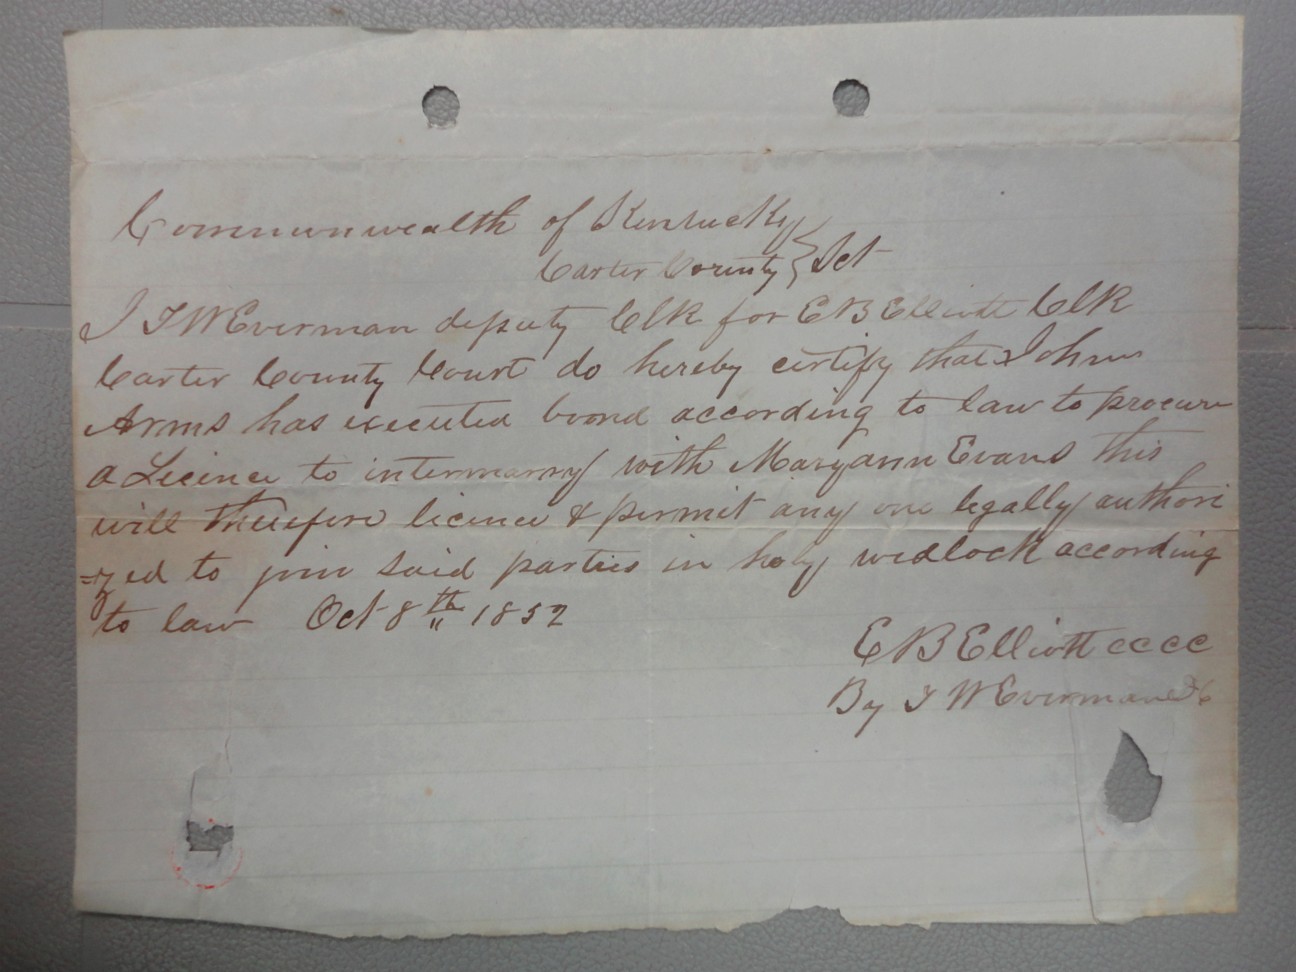 Commonwealth of Kentucky
Carter County } Sct
I T W Everman deputy Clk for E B Elliott Clk
Carter County Court do hereby certify that John
Arms has executed bond according to law to procure
a Licence to intermarry with Maryann Evans this
will therefore licence & permit any one legally authori
=zed to join said parties in holy wedlock according
to law Oct 8th 1852
E B Elliott cccc
By T W Everman dc